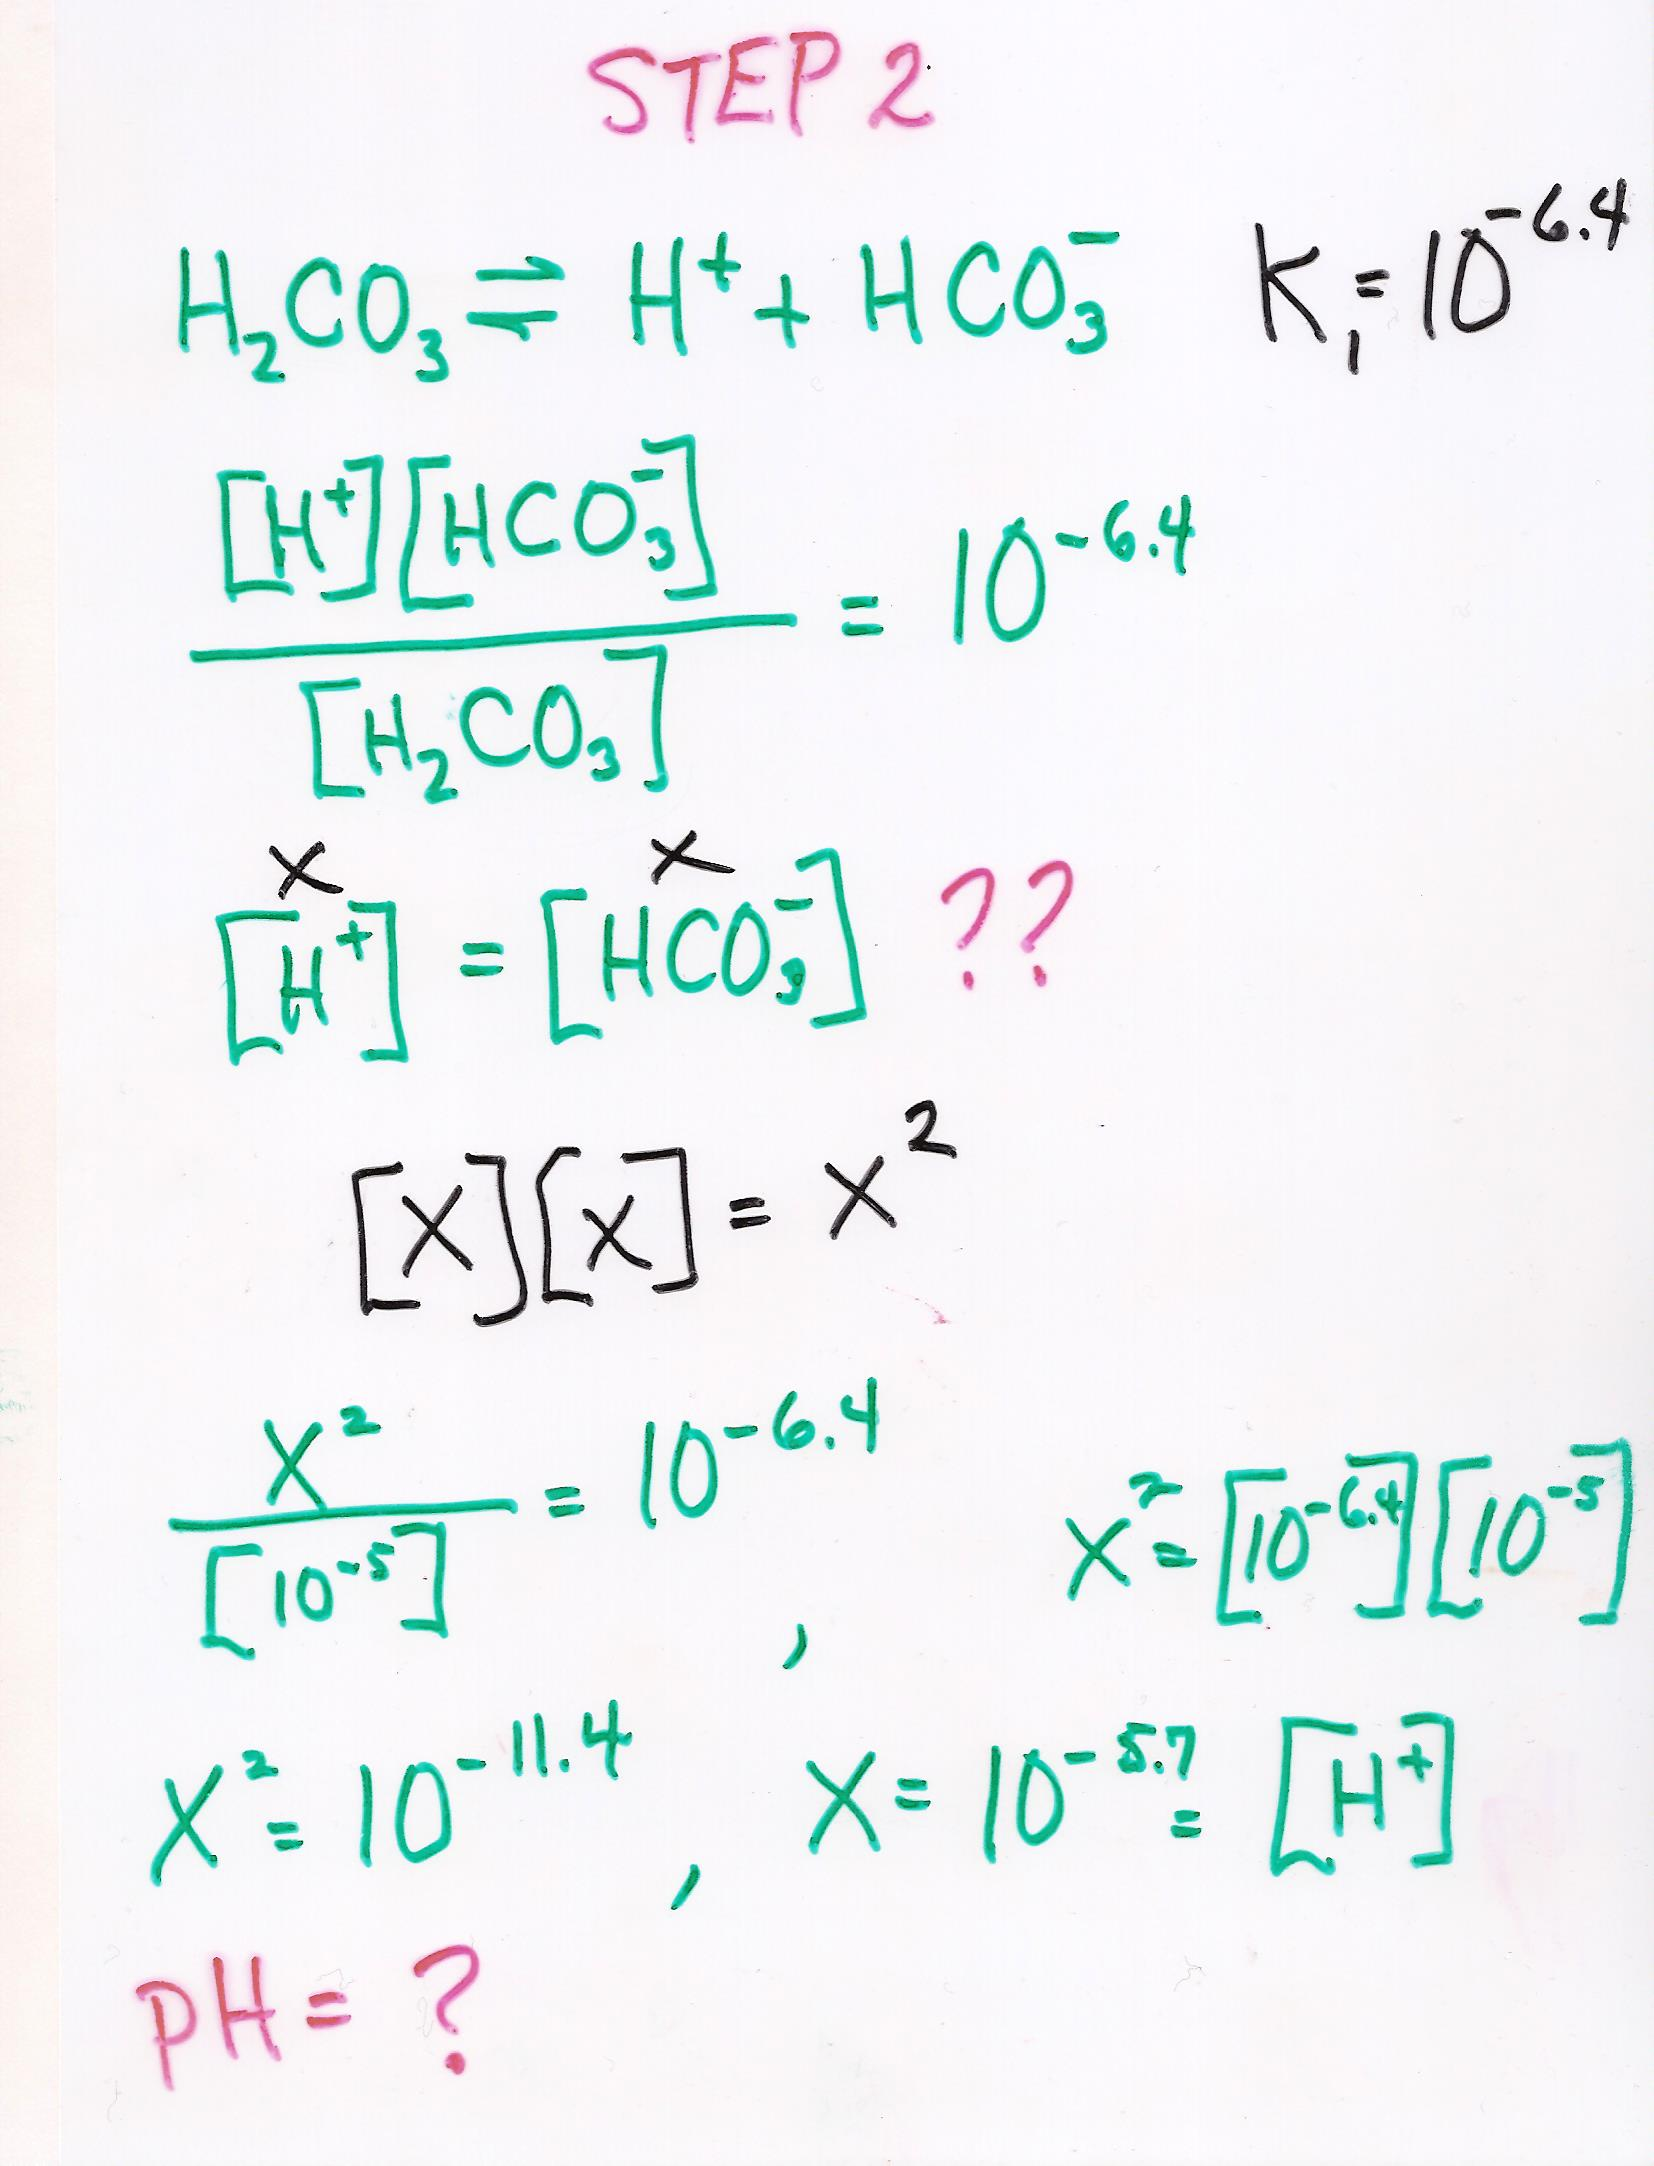 STEP 2
H₂CO₃ ⇌ H⁺ + HCO₃⁻ K₁ = 10⁻⁶·⁴
[H⁺][HCO₃⁻]
= 10⁻⁶·⁴
[H₂CO₃]
x x
[H⁺] = [HCO₃⁻] ??
[x][x] = x²
x² = 10⁻⁶·⁴
[10⁻⁵] , x² = [10⁻⁶·⁴][10⁻⁵]
x² = 10⁻¹¹·⁴ , x = 10⁻⁵·⁷ = [H⁺]
pH = ?